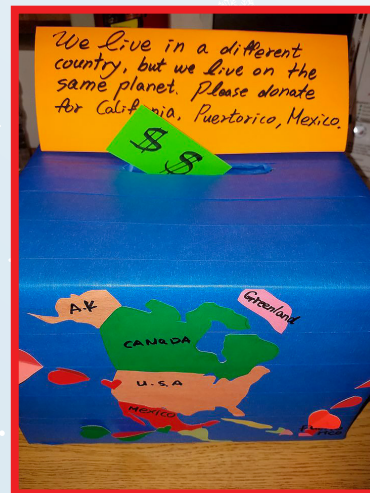 We live in a different
country, but we live on the
same planet. Please donate
for California, Puertorico, Mexico.
$ $
A.K
Greenland
CANADA
U.S.A
MEXICO